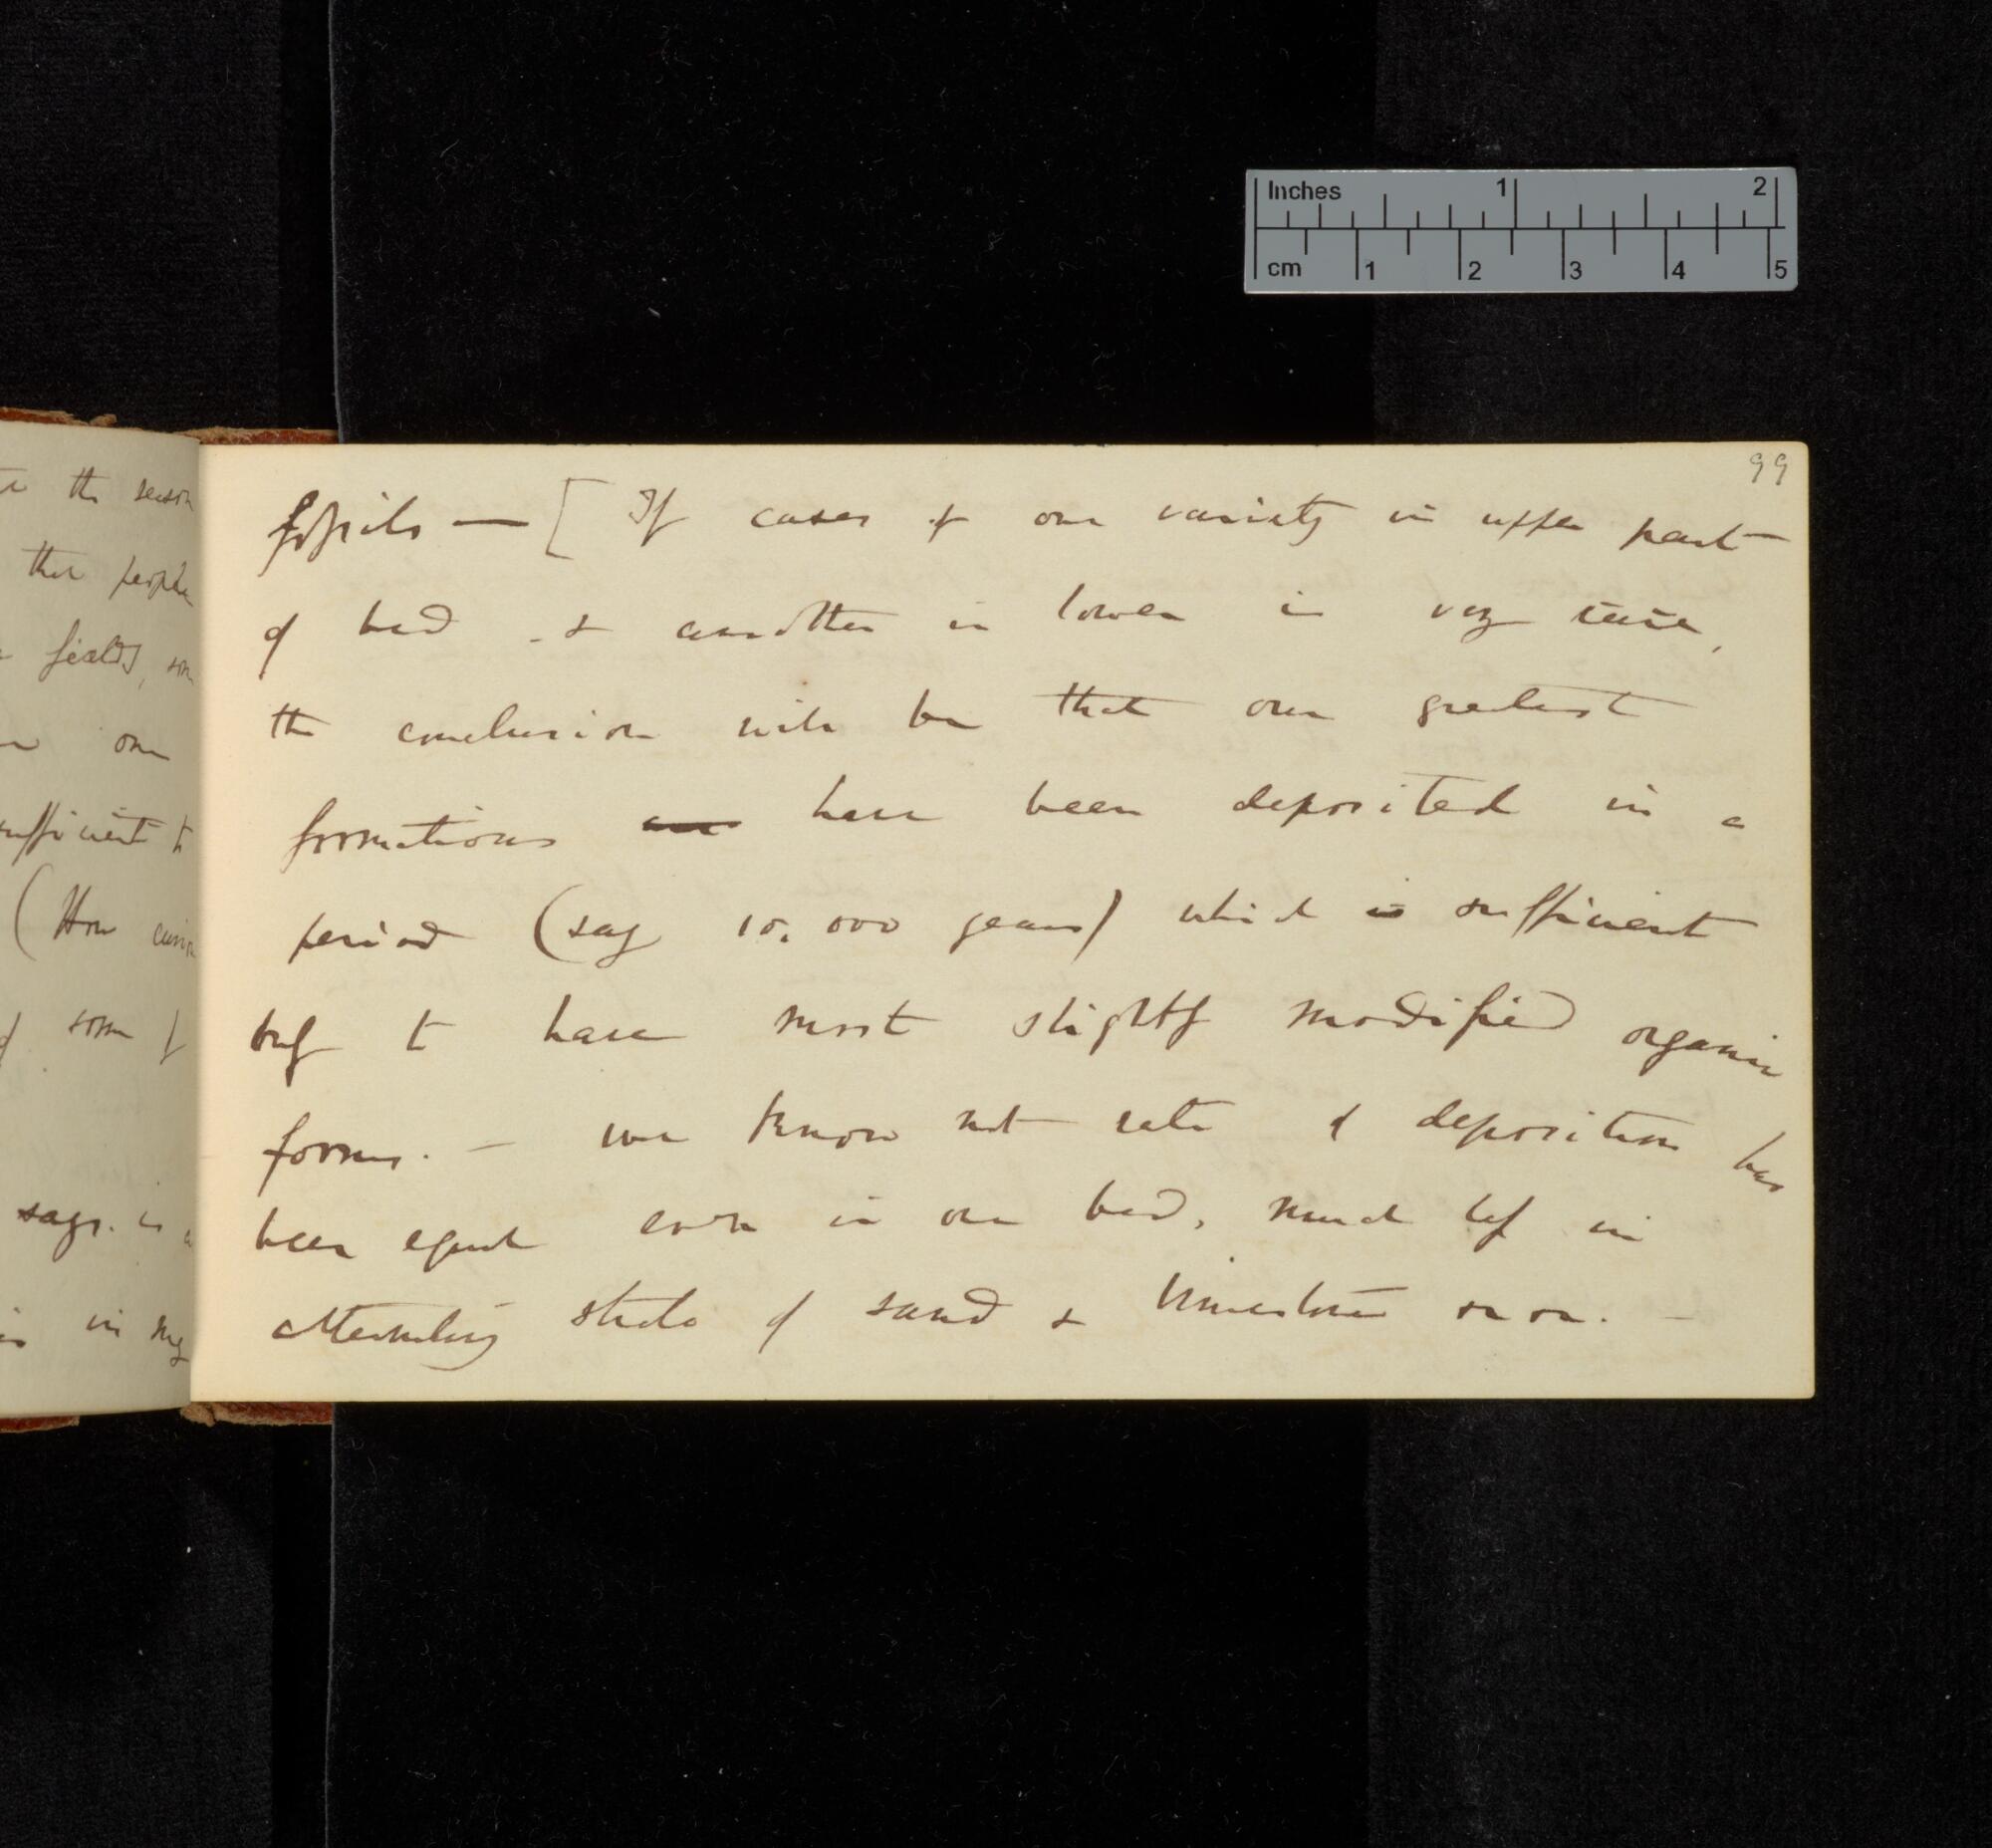 the season
ther people
fields, som
one
sufficient t
(How curio
of some f
says. is a
is in my
99
fossils — [ If cases of one variety in upper part
of bed & another in lower is very rare,
the conclusion will be that our greatest
formations have been deposited in a
period (say 10,000 years) which is sufficient
only to have most slightly modified organic
forms. — we know not rate of deposition has
been equal even in one bed, much less in
alternating strata of sand & limestone or on. —
Inches 1 2
cm 1 2 3 4 5